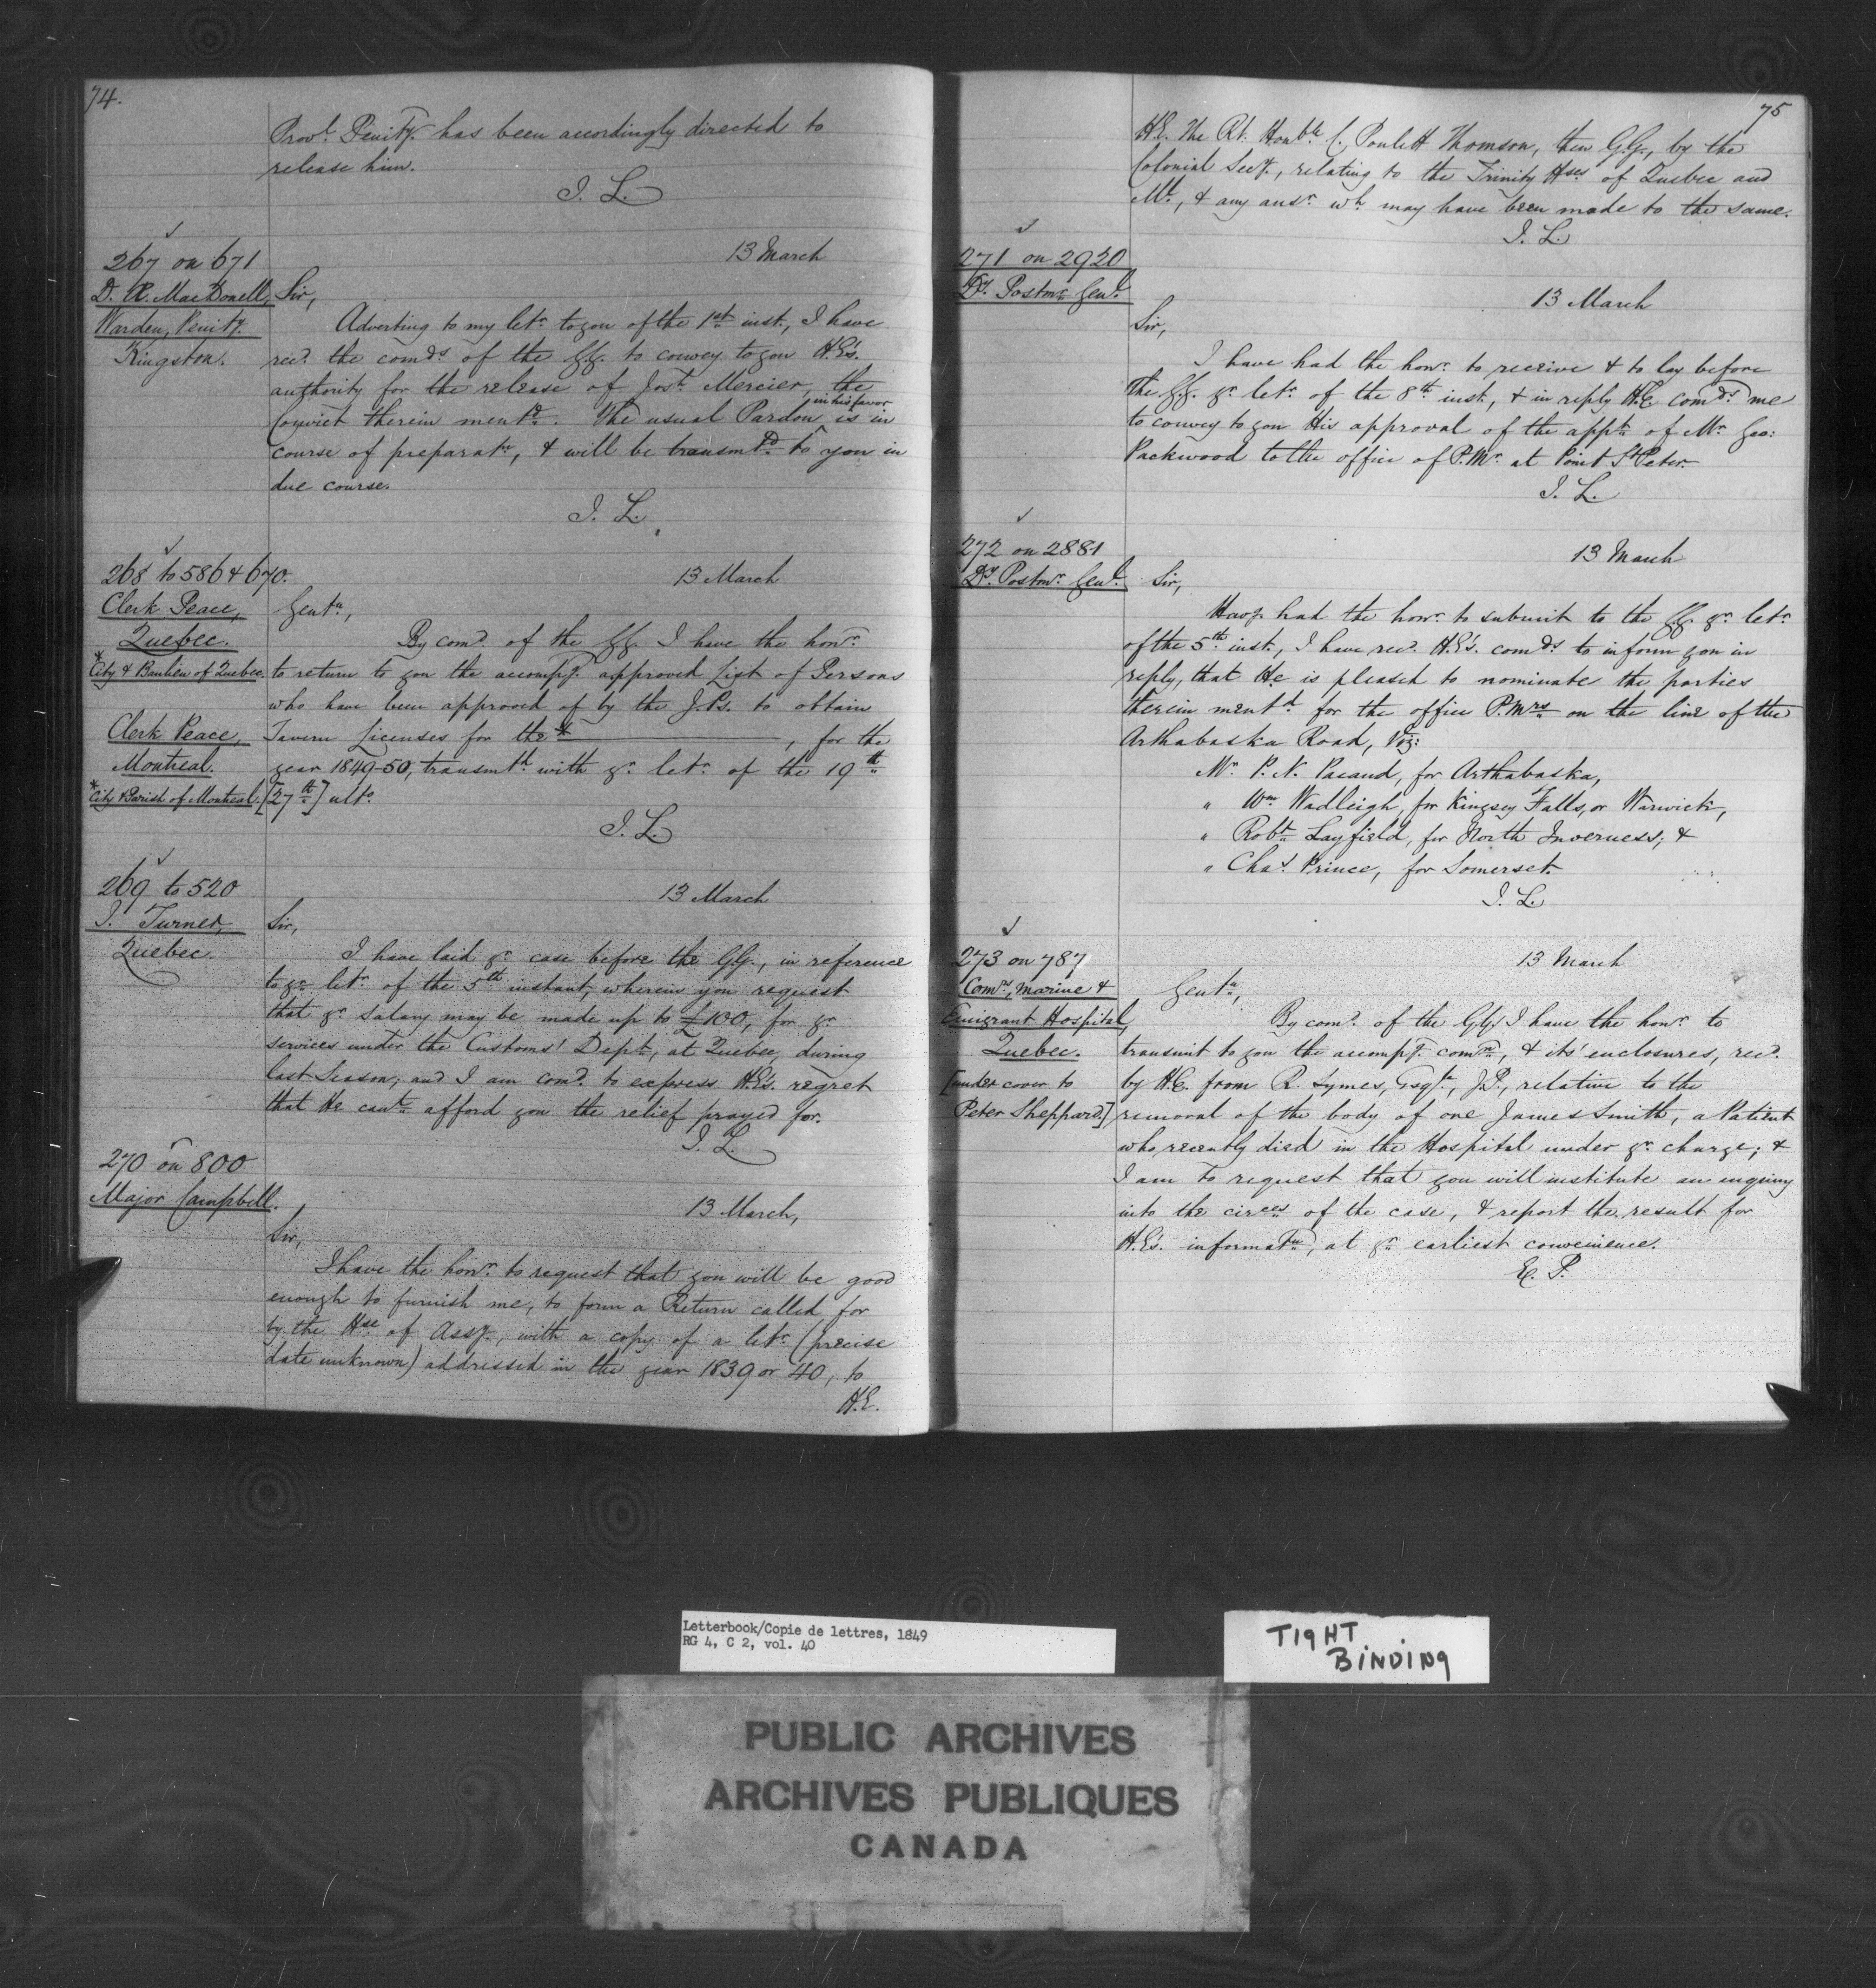 74.
Provl. Penity. has been accordingly directed to
release him.
J. L.
267 on 671
13 March
D. Æ. MacDonell,
Warden, Penity.
Kingston.
Sir,
Adverting to my letr. to you of the 1st inst., I have
recd. the comds. of the GG. to convey to you H.E's.
authority for the release of Josh. Mercier, the
Convict therein mentd. The usual Pardon in his favor is in
course of preparatn, & will be transmtd. to you in
due course.
J. L.
268 to 586 & 670.
13 March
Clerk Peace,
Quebec.
*City & Banlieu of Quebec.
Clerk Peace,
Montreal.
*City & Parish of Montreal.
Gentn,
By comd. of the GG. I have the honr.
to return to you the accompg. approved List of Persons
who have been approved of by the J.Ps. to obtain
Tavern Licenses for the * , for the
year 1849-50, transmtd. with yr. letr. of the 19th
[27th] ulto.
J. L.
269 to 520
13 March
J. Turner,
Quebec.
Sir,
I have laid yr. case before the GG., in reference
to yr. letr. of the 5th instant, wherein you request
that yr. salary may be made up to £100, for yr.
services under the Customs' Dept., at Quebec, during
last Season; and I am comd. to express H.E's. regret
that He cant. afford you the relief prayed for.
J. L.
270 on 800
Major Campbell.
13 March,
Sir,
I have the honr. to request that you will be good
enough to furnish me, to form a Return called for
by the Hse. of Assy., with a copy of a letr. (precise
date unknown) addressed in the year 1839 or '40, to
H.E.
75
H.E. The Rt. Honble. C. Poulett Thomson, then G.G., by the
Colonial Secy., relating to the Trinity Hses. of Quebec and
Ml., & any ansr. wh. may have been made to the same.
J. L.
271 on 2920
Dy. Postmr. Genl.
13 March
Sir,
I have had the honr. to receive & to lay before
The G.G. yr. letr. of the 8th inst., & in reply H.E. comds. me
to convey to you His approval of the appt. of Mr. Geo:
Packwood to the office of P.Mr. at Point St. Peter.
J. L.
272 on 2881
13 March
Dy. Postmr. Genl.
Sir,
Havg. had the honr. to submit to the GG. yr. letr.
of the 5th inst., I have recd. H.E's. comds. to inform you in
reply, that He is pleased to nominate the parties
therein mentd. for the office P.Mrs. on the line of the
Arthabaska Road, Viz:
Mr. P. N. Pacaud, for Arthabaska,
" Wm. Wadleigh, for Kingsey Falls, or Warwick,
" Robt. Layfield, for North Inverness; &
" Chas. Prince, for Somerset.
J. L.
273 on 787
13 March
Comrs, Marine &
Emigrant Hospital,
Quebec.
[under cover to
Peter Sheppard.]
Gentn,
By comd. of the GG. I have the honr. to
transmit to you the accompg. comn., & its' enclosures, recd.
by H.E. from R. Symes, Esqre., J.P., relative to the
removal of the body of one James Smith, a Patient
who recently died in the Hospital under yr. charge; &
I am to request that you will institute an inquiry
into the circes. of the case, & report the result for
H.E's. informatn, at yr. earliest convenience.
E. P.
Letterbook/Copie de lettres, 1849
RG 4, C 2, vol. 40
TIGHT
BINDING
PUBLIC ARCHIVES
ARCHIVES PUBLIQUES
CANADA